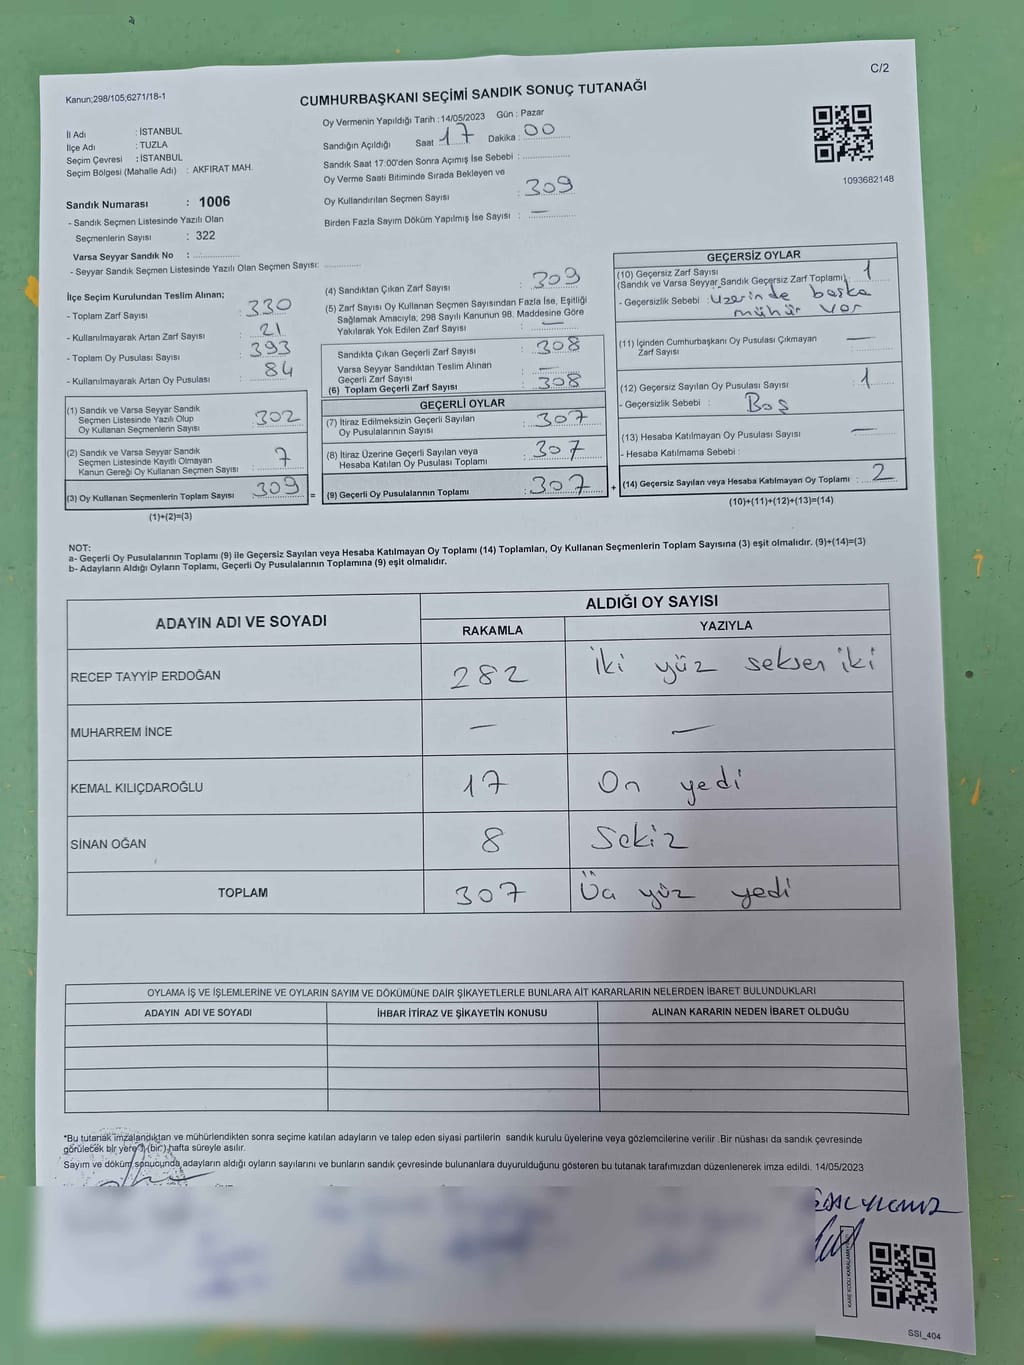 C/2
Kanun;298/105;6271/18-1
CUMHURBAŞKANI SEÇİMİ SANDIK SONUÇ TUTANAĞI
İl Adı : İSTANBUL
İlçe Adı : TUZLA
Seçim Çevresi : İSTANBUL
Seçim Bölgesi (Mahalle Adı) : AKFIRAT MAH.
Sandık Numarası : 1006
- Sandık Seçmen Listesinde Yazılı Olan
Seçmenlerin Sayısı : 322
Varsa Seyyar Sandık No :
- Seyyar Sandık Seçmen Listesinde Yazılı Olan Seçmen Sayısı:
Oy Vermenin Yapıldığı Tarih : 14/05/2023 Gün : Pazar
Sandığın Açıldığı Saat 17 Dakika : 00
Sandık Saat 17:00'den Sonra Açımış İse Sebebi :
Oy Verme Saati Bitiminde Sırada Bekleyen ve
Oy Kullandırılan Seçmen Sayısı : 309
Birden Fazla Sayım Döküm Yapılmış İse Sayısı : —
1093682148
İlçe Seçim Kurulundan Teslim Alınan;
- Toplam Zarf Sayısı : 330
- Kullanılmayarak Artan Zarf Sayısı : 21
- Toplam Oy Pusulası Sayısı : 393
- Kullanılmayarak Artan Oy Pusulası : 84
(1) Sandık ve Varsa Seyyar Sandık
Seçmen Listesinde Yazılı Olup
Oy Kullanan Seçmenlerin Sayısı : 302
(2) Sandık ve Varsa Seyyar Sandık
Seçmen Listesinde Kayıtlı Olmayan
Kanun Gereği Oy Kullanan Seçmen Sayısı : 7
(3) Oy Kullanan Seçmenlerin Toplam Sayısı : 309 =
(1)+(2)=(3)
(4) Sandıktan Çıkan Zarf Sayısı : 309
(5) Zarf Sayısı Oy Kullanan Seçmen Sayısından Fazla İse, Eşitliği
Sağlamak Amacıyla; 298 Sayılı Kanunun 98. Maddesine Göre
Yakılarak Yok Edilen Zarf Sayısı : —
Sandıkta Çıkan Geçerli Zarf Sayısı : 308
Varsa Seyyar Sandıktan Teslim Alınan
Geçerli Zarf Sayısı : —
(6) Toplam Geçerli Zarf Sayısı : 308
GEÇERLİ OYLAR
(7) İtiraz Edilmeksizin Geçerli Sayılan
Oy Pusulalarının Sayısı : 307
(8) İtiraz Üzerine Geçerli Sayılan veya
Hesaba Katılan Oy Pusulası Toplamı : 307
(9) Geçerli Oy Pusulalarının Toplamı : 307 +
GEÇERSİZ OYLAR
(10) Geçersiz Zarf Sayısı
(Sandık ve Varsa Seyyar Sandık Geçersiz Zarf Toplamı) : 1
- Geçersizlik Sebebi : Üzerinde başka
mühür var
(11) İçinden Cumhurbaşkanı Oy Pusulası Çıkmayan
Zarf Sayısı : —
(12) Geçersiz Sayılan Oy Pusulası Sayısı : 1
- Geçersizlik Sebebi : Boş
(13) Hesaba Katılmayan Oy Pusulası Sayısı : —
- Hesaba Katılmama Sebebi :
(14) Geçersiz Sayılan veya Hesaba Katılmayan Oy Toplamı : 2
(10)+(11)+(12)+(13)=(14)
NOT:
a- Geçerli Oy Pusulalarının Toplamı (9) ile Geçersiz Sayılan veya Hesaba Katılmayan Oy Toplamı (14) Toplamları, Oy Kullanan Seçmenlerin Toplam Sayısına (3) eşit olmalıdır. (9)+(14)=(3)
b- Adayların Aldığı Oyların Toplamı, Geçerli Oy Pusulalarının Toplamına (9) eşit olmalıdır.
ADAYIN ADI VE SOYADI ALDIĞI OY SAYISI
RAKAMLA YAZIYLA
RECEP TAYYİP ERDOĞAN 282 İki yüz seksen iki
MUHARREM İNCE — —
KEMAL KILIÇDAROĞLU 17 On yedi
SİNAN OĞAN 8 Sekiz
TOPLAM 307 Üç yüz yedi
OYLAMA İŞ VE İŞLEMLERİNE VE OYLARIN SAYIM VE DÖKÜMÜNE DAİR ŞİKAYETLERLE BUNLARA AİT KARARLARIN NELERDEN İBARET BULUNDUKLARI
ADAYIN ADI VE SOYADI İHBAR İTİRAZ VE ŞİKAYETİN KONUSU ALINAN KARARIN NEDEN İBARET OLDUĞU
*Bu tutanak imzalandıktan ve mühürlendikten sonra seçime katılan adayların ve talep eden siyasi partilerin sandık kurulu üyelerine veya gözlemcilerine verilir .Bir nüshası da sandık çevresinde
görülecek bir yere 1 (bir) hafta süreyle asılır.
Sayım ve döküm sonucunda adayların aldığı oyların sayılarını ve bunların sandık çevresinde bulunanlara duyurulduğunu gösteren bu tutanak tarafımızdan düzenlenerek imza edildi. 14/05/2023
SSI_404